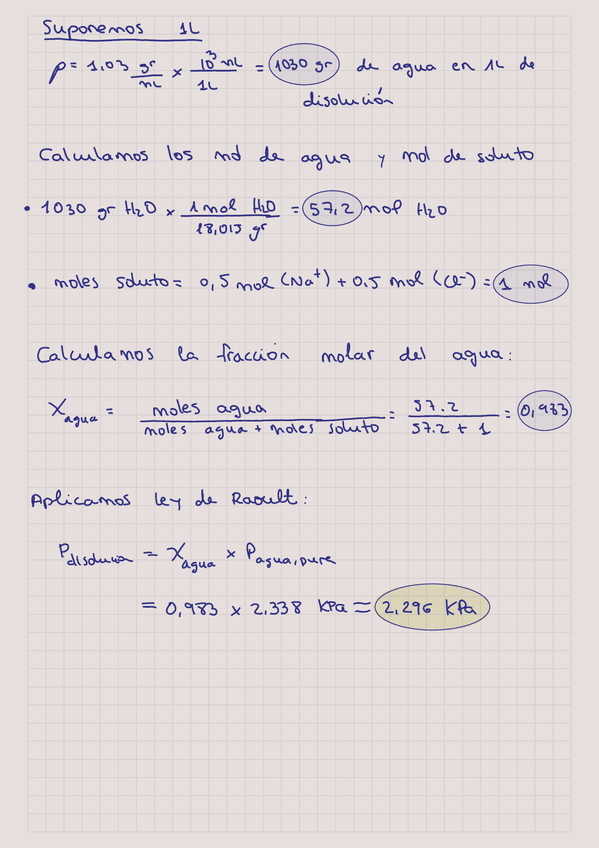 Suponemos 1L
ρ = 1,03 gr/mL × 10³ mL/1L = 1030 gr de agua en 1L de
disolución
Calculamos los mol de agua y mol de soluto
• 1030 gr H₂O × 1 mol H₂O/18,015 gr = 57,2 mol H₂O
• moles soluto = 0,5 mol (Na⁺) + 0.5 mol (Cl⁻) = 1 mol
Calculamos la fracción molar del agua:
X agua = moles agua/moles agua + moles soluto = 57.2/57.2 + 1 = 0,983
Aplicamos ley de Raoult:
P disolución = X agua × P agua, pura
= 0,983 × 2,338 KPa = 2,296 KPa